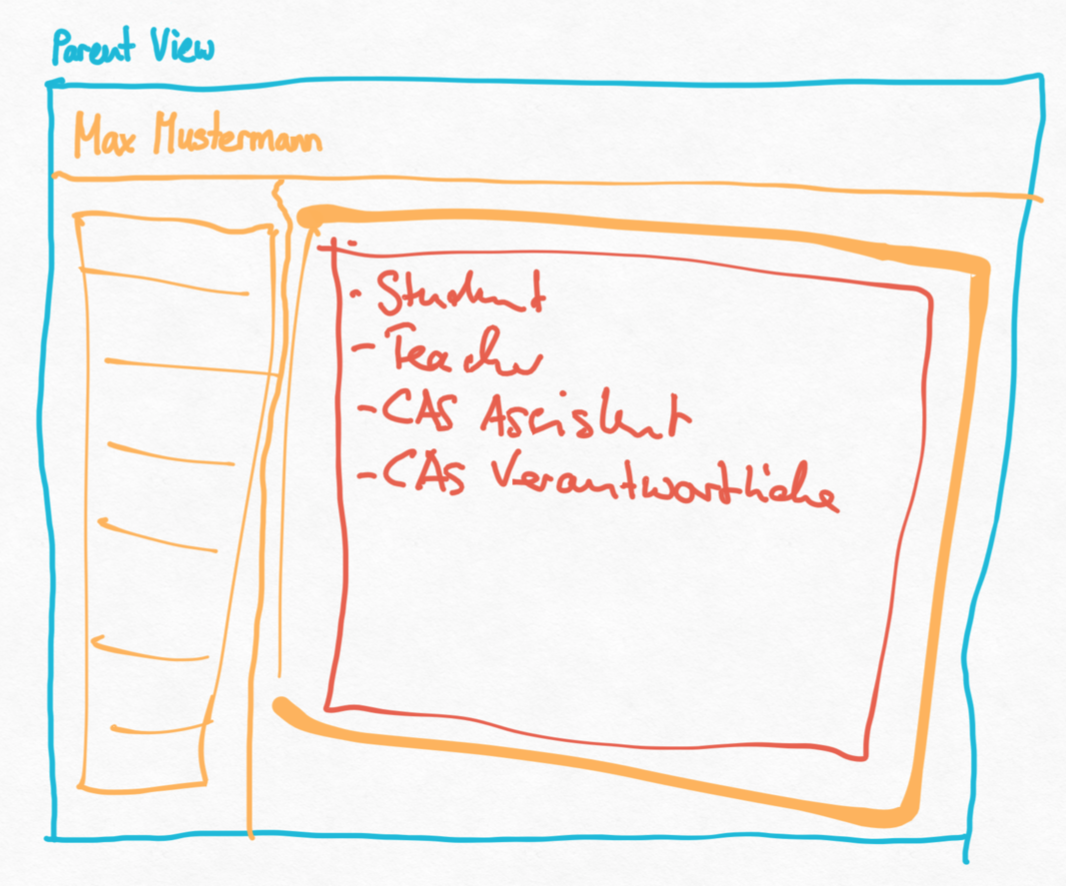 Parent View
Max Mustermann
- Student
- Teacher
- CAS Assistent
- CAS Verantwortliche